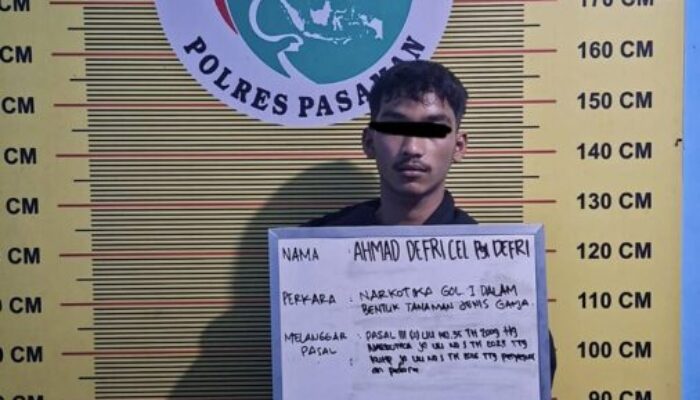 POLRES PASAMAN
170 CM
160 CM
150 CM
140 CM
130 CM
120 CM
110 CM
100 CM
90 CM
CM
CM
CM
CM
CM
CM
CM
CM
NAMA : AHMAD DEFRI CEL Pgl DEFRI
PERKARA : NARKOTIKA GOL I DALAM
BENTUK TANAMAN JENIS GANJA.
MELANGGAR : PASAL 111 (1) UU NO.35 TH 2009 ttg
PASAL NARKOTIKA jo UU NO 1 TH 2023 TTG
KUHP jo UU NO 1 TH 2026 TTG penyesuaian pidana